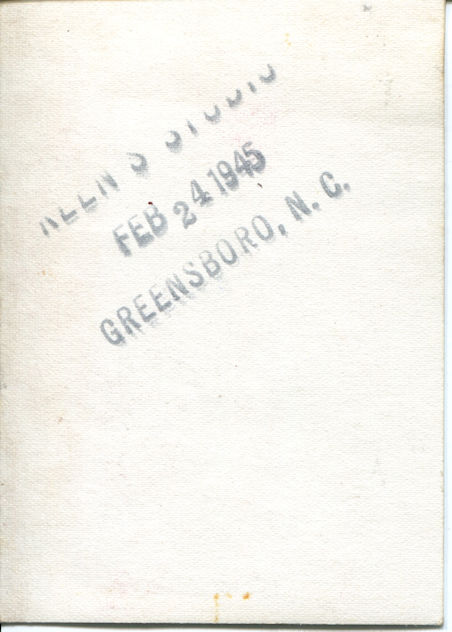 KEEN'S STUDIO
FEB 24 1945
GREENSBORO, N. C.